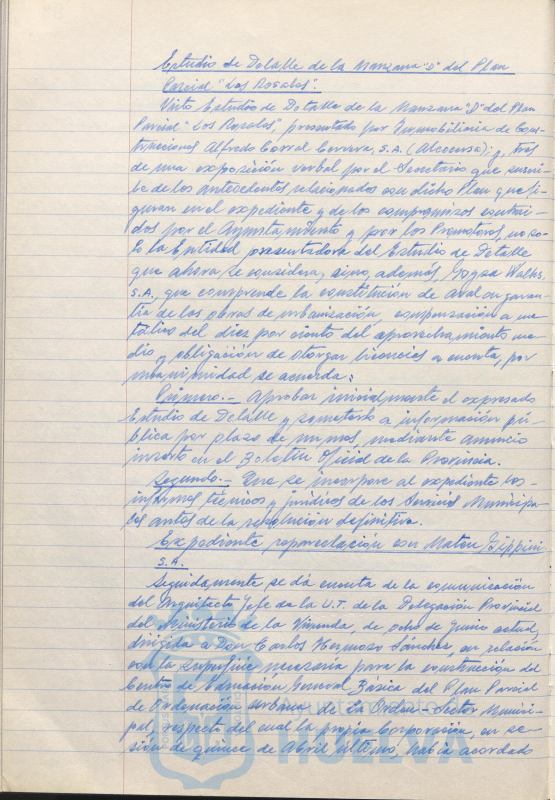 Estudio de Detalle de la Manzana "D" del Plan
Parcial "Los Rosales".
Visto Estudio de Detalle de la Manzana "D" del Plan
Parcial "Los Rosales", presentado por Inmobiliaria de Cons-
trucciones Alfredo Corral Cervera, S.A. (Alcocersa); y, tras
de una exposición verbal por el Secretario que suscri-
be de los antecedentes relacionados con dicho Plan que fi-
guran en el expediente y de los compromisos contraí-
dos por el Ayuntamiento y por los Promotores, no so-
lo la Entidad presentadora del Estudio de Detalle
que ahora se considera, sino, además,
S.A., que comprende la constitución de aval en garan-
tía de las obras de urbanización, compensación a me-
tálico del diez por ciento del aprovechamiento me-
dio y obligación de otorgar licencias a cuenta, por
unanimidad se acuerda:
Primero.- Aprobar inicialmente el expresado
Estudio de Detalle y someterlo a información pú-
blica por plazo de un mes, mediante anuncio
inserto en el Boletín Oficial de la Provincia.
Segundo.- Que se incorpore al expediente los-
informes técnicos y jurídicos de los Servicios Municipa-
les antes de la resolución definitiva.
Expediente reparcelación con Mateu
S.A.
Seguidamente se dá cuenta de la comunicación
del Arquitecto Jefe de la U.T. de la Delegación Provincial
del Ministerio de la Vivienda, de ocho de Junio actual,
dirigida a Don Carlos Hermoso Sánchez, en relación
con la superficie necesaria para la construcción del
Centro de Educación General Básica del Plan Parcial
de Ordenación Urbana de la Orden - Sector Munici-
pal, respecto del cual la propia Corporación, en se-
sión de quince de Abril último, había acordado
Ayuntamiento de
HUELVA